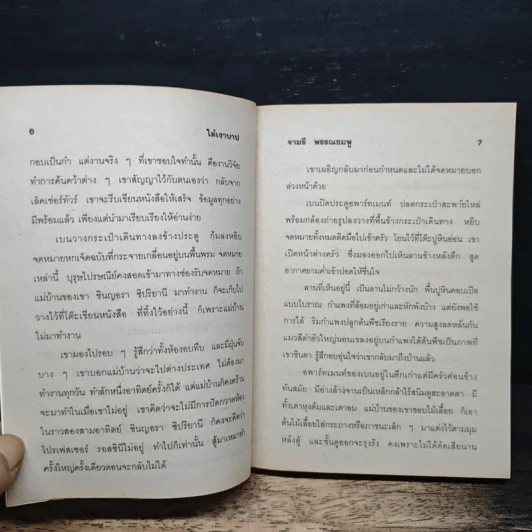 6
ใต้เงาบาป
กอบเป็นกำ แต่งานจริง ๆ ที่เขาชอบใจทำนั้น คืองานวิจัย
ทำการค้นคว้าต่าง ๆ เขาสัญญาไว้กับตนเองว่า กลับจาก
เล็คเชอร์ทัวร์ เขาจะรีบเขียนหนังสือให้เสร็จ ข้อมูลทุกอย่าง
มีพร้อมแล้ว เพียงแต่นำมาเรียบเรียงให้อ่านง่าย
เบนวางกระเป๋าเดินทางลงข้างประตู ก้มลงหยิบ
จดหมายหกเจ็ดฉบับที่กระจายเกลื่อนอยู่บนพื้นพรม จดหมาย
เหล่านี้ บุรุษไปรษณีย์คงสอดเข้ามาทางช่องรับจดหมาย ถ้า
แม่บ้านของเขา ซินญอรา ซิปริยานี มาทำงาน ก็จะเก็บไป
วางไว้ที่โต๊ะเขียนหนังสือ ที่ทิ้งไว้อย่างนี้ ก็เพราะแม่บ้าน
ไม่มาทำงาน
เขามองไปรอบ ๆ รู้สึกว่าทั้งห้องอบทึบ และมีฝุ่นจับ
บาง ๆ เขาบอกแม่บ้านว่าจะไปต่างประเทศ ไม่ต้องมา
ทำงานทุกวัน ทำสักหนึ่งอาทิตย์ครั้งก็ได้ แต่แม่บ้านก็คงคร้าน
จะมาทำในเมื่อเขาไม่อยู่ เขาคิดว่าจะไม่มีการปัดกวาดห้อง
ในราวสองสามอาทิตย์ ซินญอรา ซิปริยานี ก็คงจะคิดว่า
โปรเฟสเซอร์ รอสซินีไม่อยู่ ทำไปก็เท่านั้น สู้มาเหมาทำ
ครั้งใหญ่ครั้งเดียวตอนจะกลับไม่ได้
จามรี พรรณชมพู
7
เขาเผอิญกลับมาก่อนกำหนดและไม่ได้จดหมายบอก
ล่วงหน้าด้วย
เบนปิดประตูอพาร์ทเมนท์ ปลดกระเป๋าสะพายไหล่
พร้อมกล้องถ่ายรูปลงวางที่พื้นข้างกระเป๋าเดินทาง หยิบ
จดหมายทั้งหมดติดมือไปเข้าครัว โยนไว้ที่โต๊ะปูหินอ่อน เขา
เปิดหน้าต่างครัว ซึ่งมองออกไปเห็นลานข้างหลังตึก สูด
อากาศยามค่ำเข้าปอดให้ชื่นใจ
ลานที่เห็นอยู่นี้ เป็นลานไม่กว้างนัก พื้นปูหินคอบเบิล
แบบโบราณ กำแพงที่ล้อมอยู่เก่าและหักพังบ้าง แต่ยังพอใช้
การได้ ริมกำแพงปลูกต้นพืชเรียงราย ความสูงลดหลั่นกัน
แมวสีดำตัวใหญ่นอนเขลงอยู่บนกำแพงใต้ต้นพืชเป็นภาพที่
เขาชินตา รู้สึกอบอุ่นใจว่าเขากลับมาถึงบ้านแล้ว
อพาร์ทเมนท์ของเบนอยู่ในตึกเก่าแต่มีครัวค่อนข้าง
ทันสมัย มีอ่างล้างจานเป็นเหล็กกล้าไร้สนิมดูสะอาดตา มี
ทั้งเตาหุงต้มและเตาอบ แม่บ้านของเขาชอบไม้เลื้อย ก็เอา
ต้นไม้เลื้อยใส่กระถางหรือภาชนะเล็ก ๆ มาแต่งไว้ตามมุม
หลังตู้ และชั้นดูออกจะรุงรัง คงเพราะไม่ได้ตัดเสียนาน